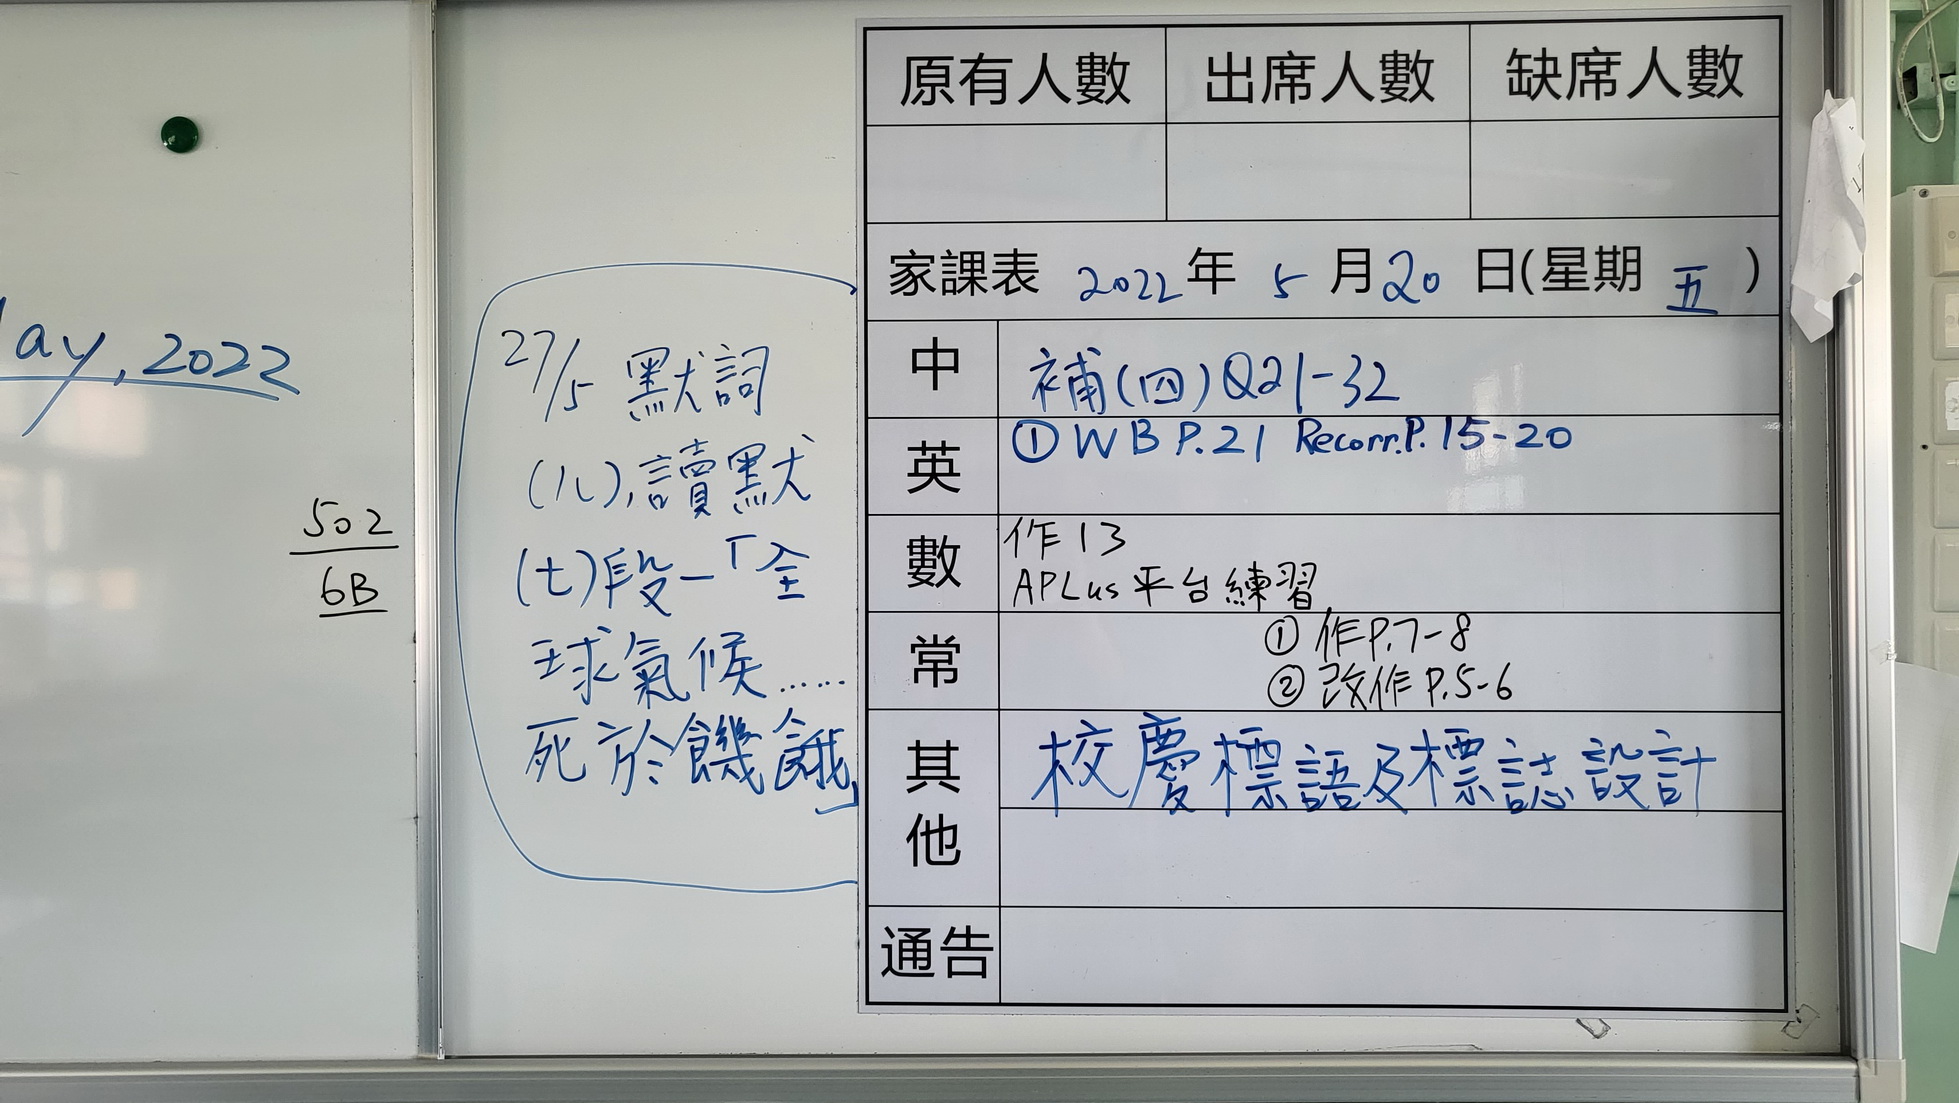 ay, 2022
502
6B
27/5 默詞
(八),讀默
(七)段一「全
球氣候……
死於饑餓」
原有人數 出席人數 缺席人數
家課表 2022年 5月20日(星期五)
中 補(四)Q21-32
英 ① WB P.21 Recorr.P.15-20
數 作13
APLus平台練習
常 ① 作P.7-8
② 改作P.5-6
其他 校慶標語及標誌設計
通告